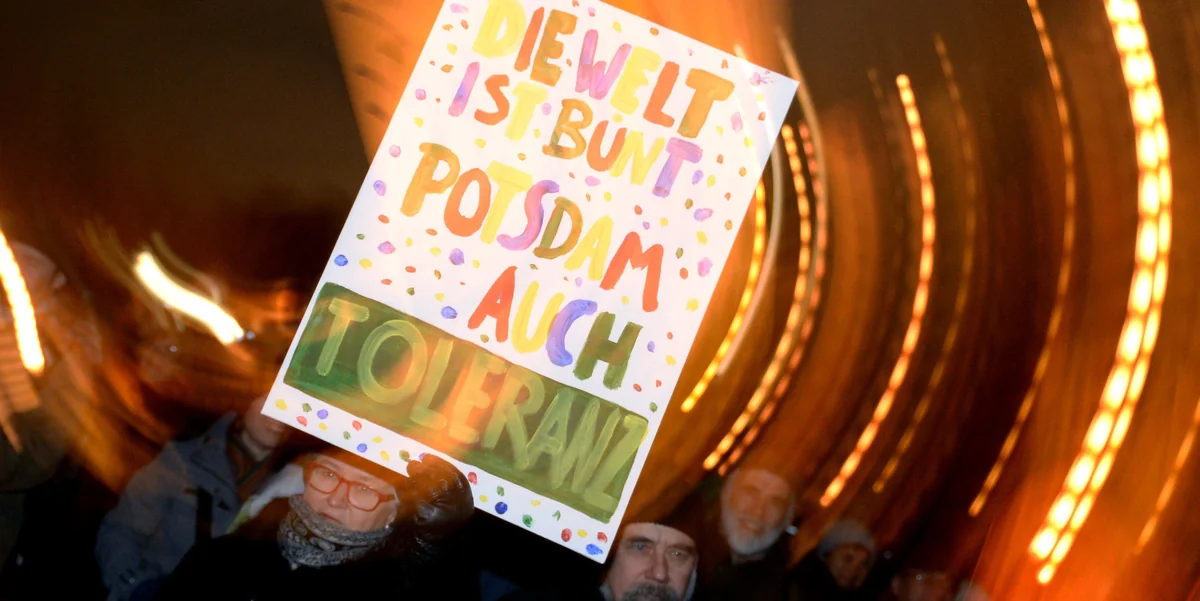 DIE WELT
IST BUNT
POTSDAM
AUCH
TOLERANZ